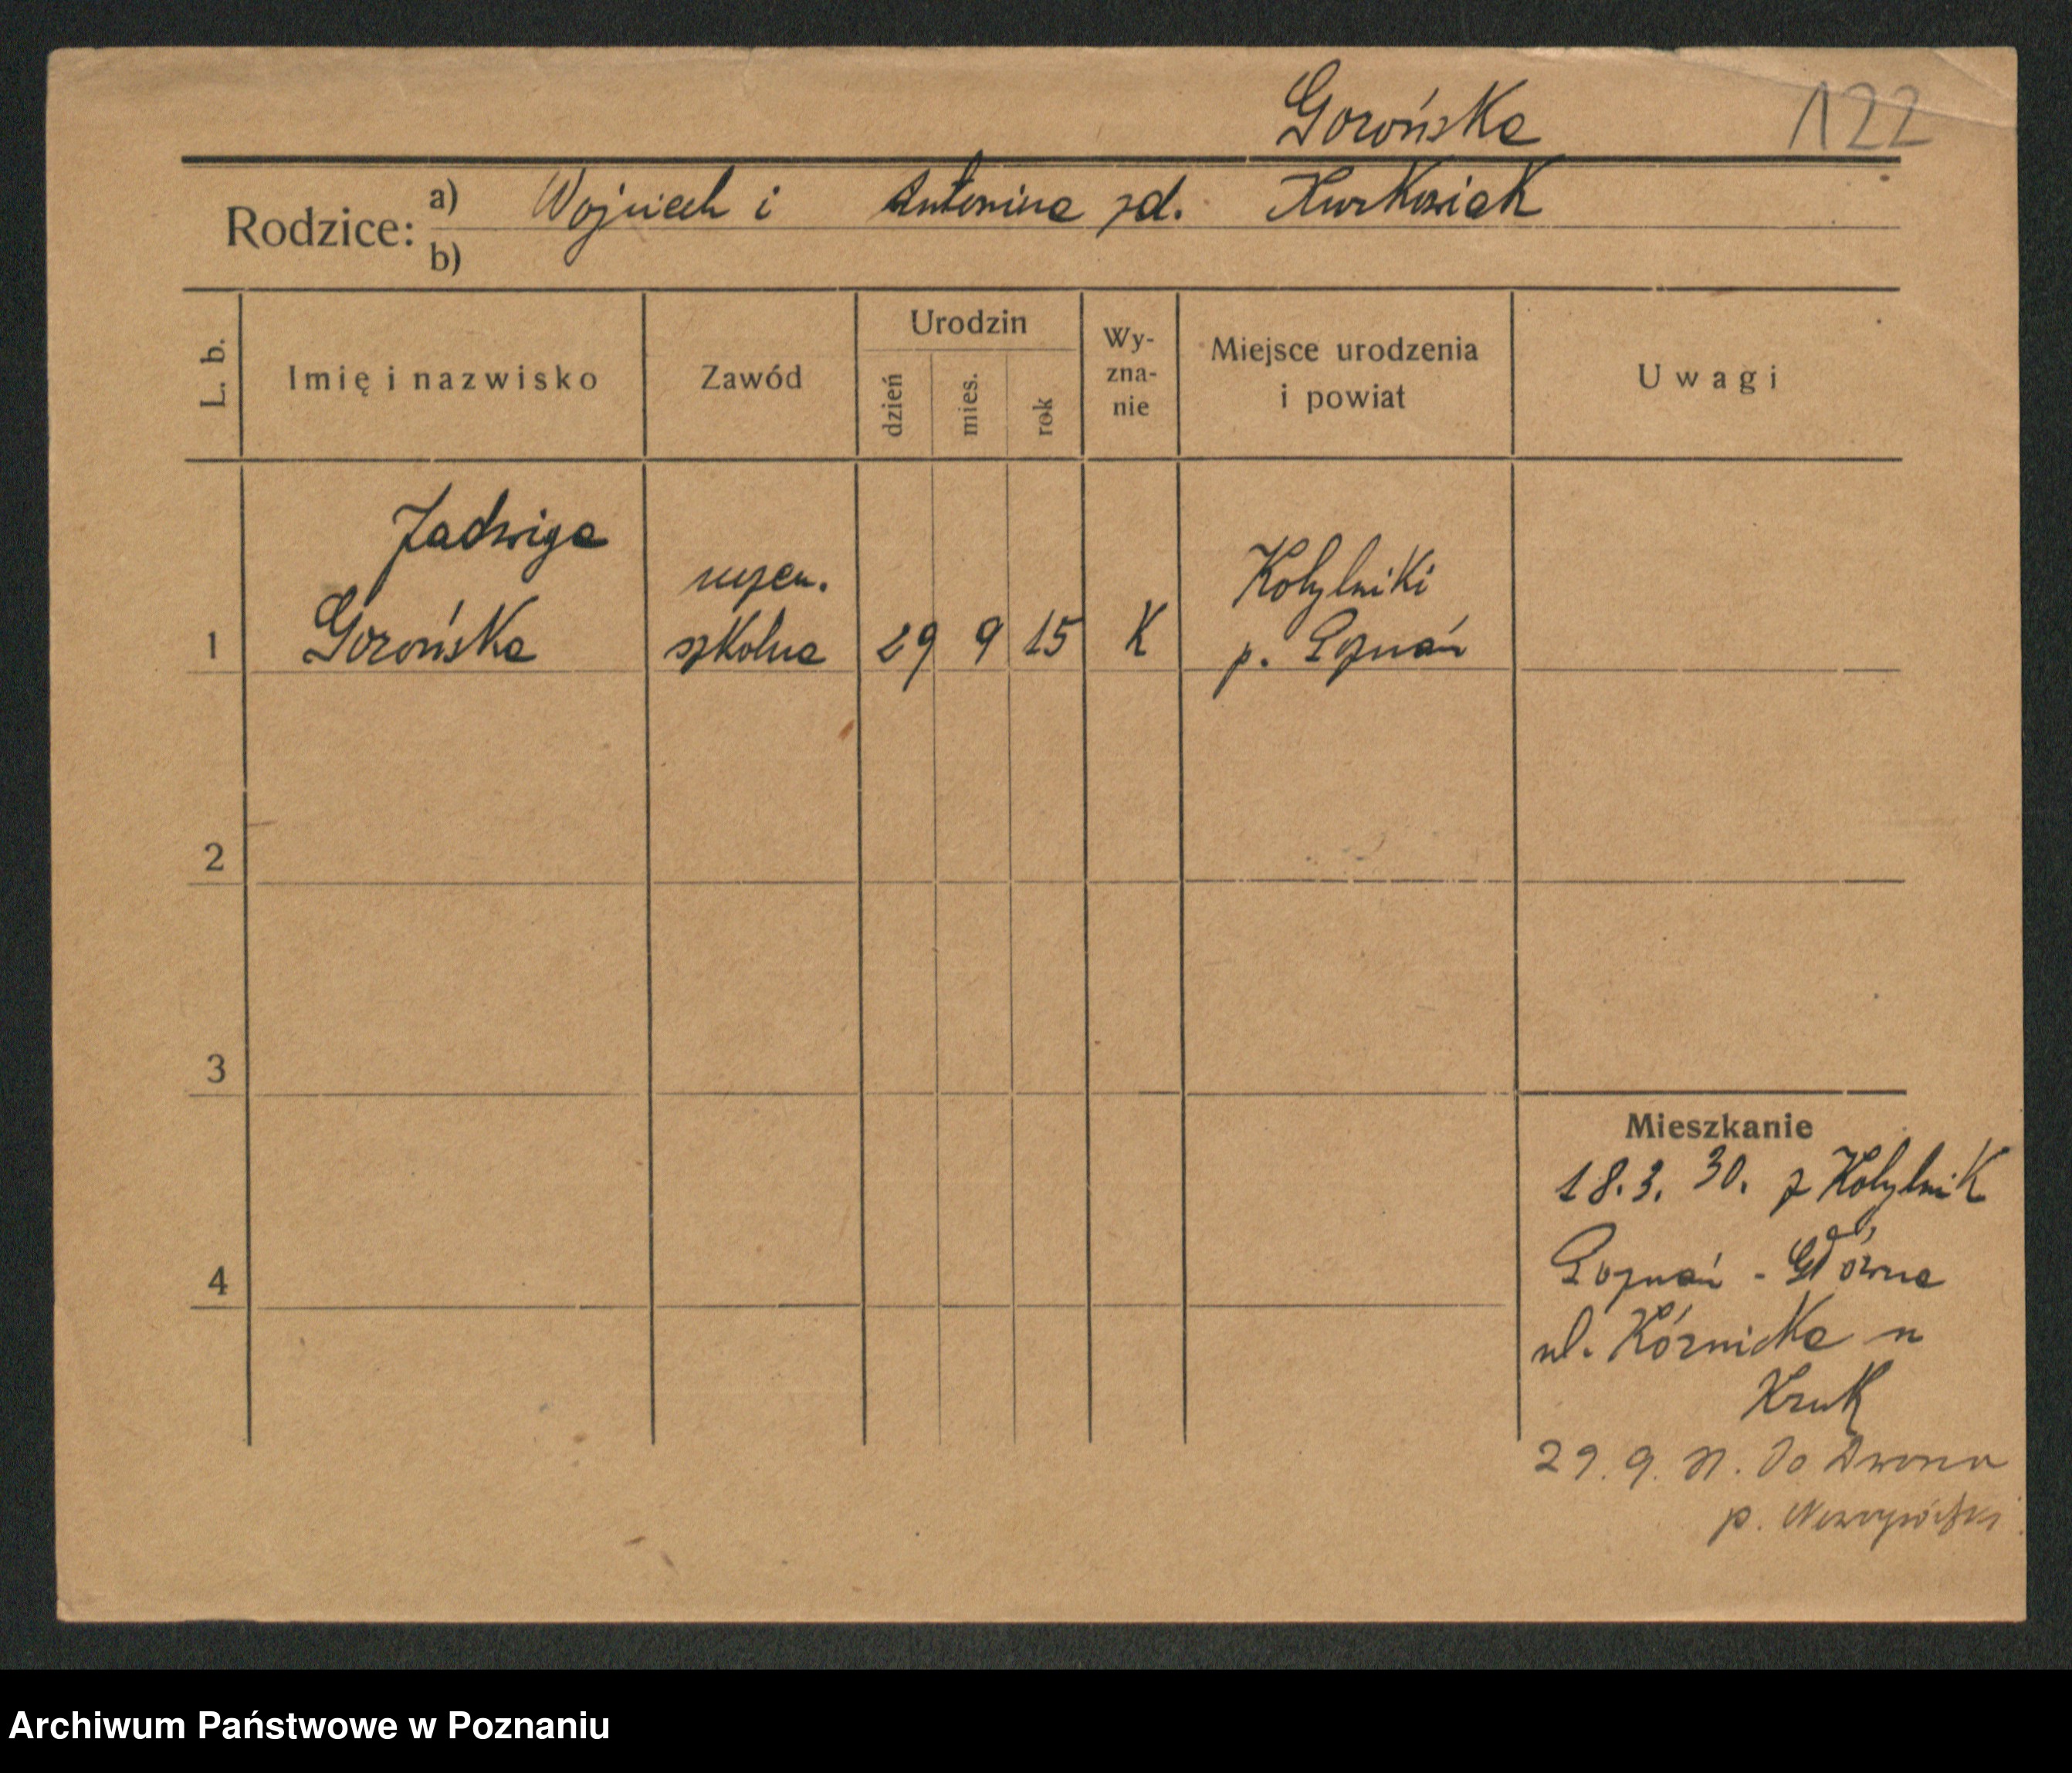 Gorońska 122
Rodzice: a) Wojciech i Antonina zd. Kurkowiak
b)
L. b. Imię i nazwisko Zawód Urodzin dzień mies. rok Wy-zna-nie Miejsce urodzenia i powiat Uwagi
Jadwiga
uczen. Kobylniki
1 Gorońska szkolna 29 9 15 K p. Poznań
2
3
Mieszkanie
18.3. 30. z Kobylnik
4 Poznań - Główna
ul. Kórnicka u
Kruk
29. 9. 31. Do Dwora
p.
Archiwum Państwowe w Poznaniu